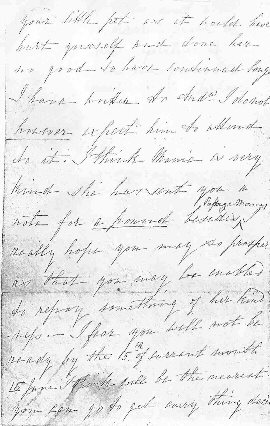 your little pot as it would have
hurt yourself and done her
no good to have continued long
I have written to And^w I do not
however expect him to attend
to it. I think Maria is very
kind she has sent you a
note for a pound besides
really hope you may so prosper
as that you may be enabled
to repay something of her kind
ness. I fear you will not be
ready by the 15th of current month
will be the nearest
you can go to get every thing